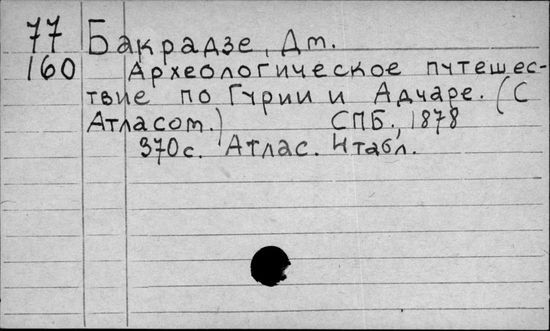 77 Бакрадзе, Дм.
160 Археологическое путешес-
твие по Гурии и Адчаре. (С
Атласом.) СПБ., 1878
370с. Атлас. Нтабл.